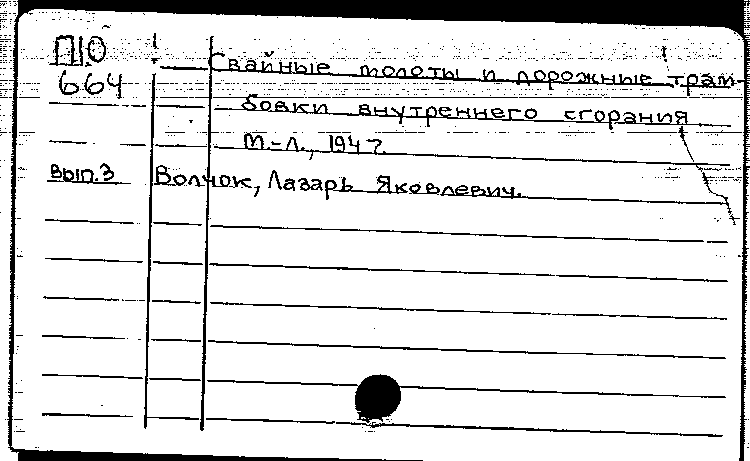 П10 Свайные молоты и дорожные трам-
664 бовки внутреннего сгорания
М.-Л., 1947.
Вып.3 Волчок, Лазарь Яковлевич.